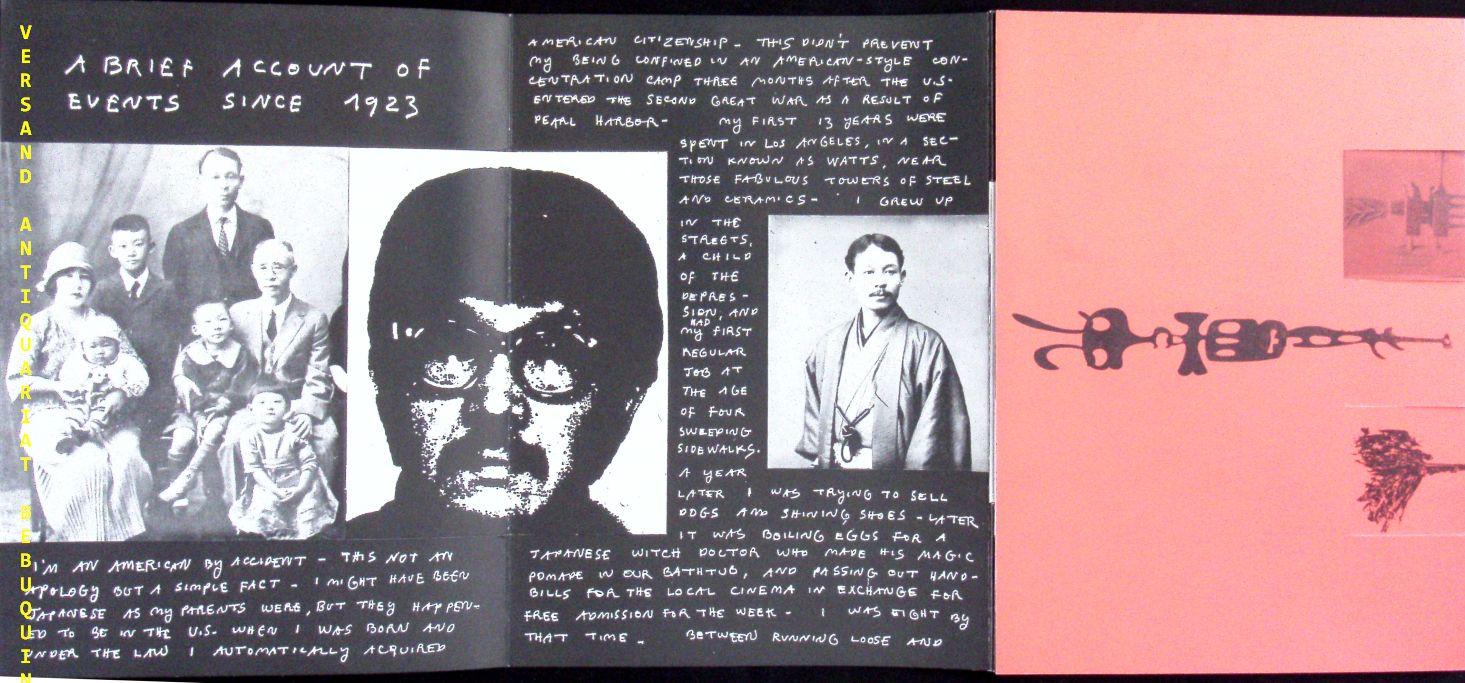 VERSAND ANTIQUARIAT BEBUQUIN
A BRIEF ACCOUNT OF
EVENTS SINCE 1923
I'M AN AMERICAN BY ACCIDENT - THIS NOT AN
APOLOGY BUT A SIMPLE FACT - I MIGHT HAVE BEEN
JAPANESE AS MY PARENTS WERE, BUT THEY HAPPEN-
ED TO BE IN THE U.S. WHEN I WAS BORN AND
UNDER THE LAW I AUTOMATICALLY ACQUIRED
AMERICAN CITIZENSHIP - THIS DIDN'T PREVENT
MY BEING CONFINED IN AN AMERICAN-STYLE CON-
CENTRATION CAMP THREE MONTHS AFTER THE U.S.
ENTERED THE SECOND GREAT WAR AS A RESULT OF
PEARL HARBOR- MY FIRST 13 YEARS WERE
SPENT IN LOS ANGELES, IN A SEC-
TION KNOWN AS WATTS, NEAR
THOSE FABULOUS TOWERS OF STEEL
AND CERAMICS- I GREW UP
IN THE
STREETS,
A CHILD
OF THE
DEPRES-
SION, AND
HAD
MY FIRST
REGULAR
JOB AT
THE AGE
OF FOUR
SWEEPING
SIDEWALKS.
A YEAR
LATER I WAS TRYING TO SELL
DOGS AND SHINING SHOES - LATER
IT WAS BOILING EGGS FOR A
JAPANESE WITCH DOCTOR WHO MADE HIS MAGIC
POMADE IN OUR BATHTUB, AND PASSING OUT HAND-
BILLS FOR THE LOCAL CINEMA IN EXCHANGE FOR
FREE ADMISSION FOR THE WEEK - I WAS EIGHT BY
THAT TIME - BETWEEN RUNNING LOOSE AND